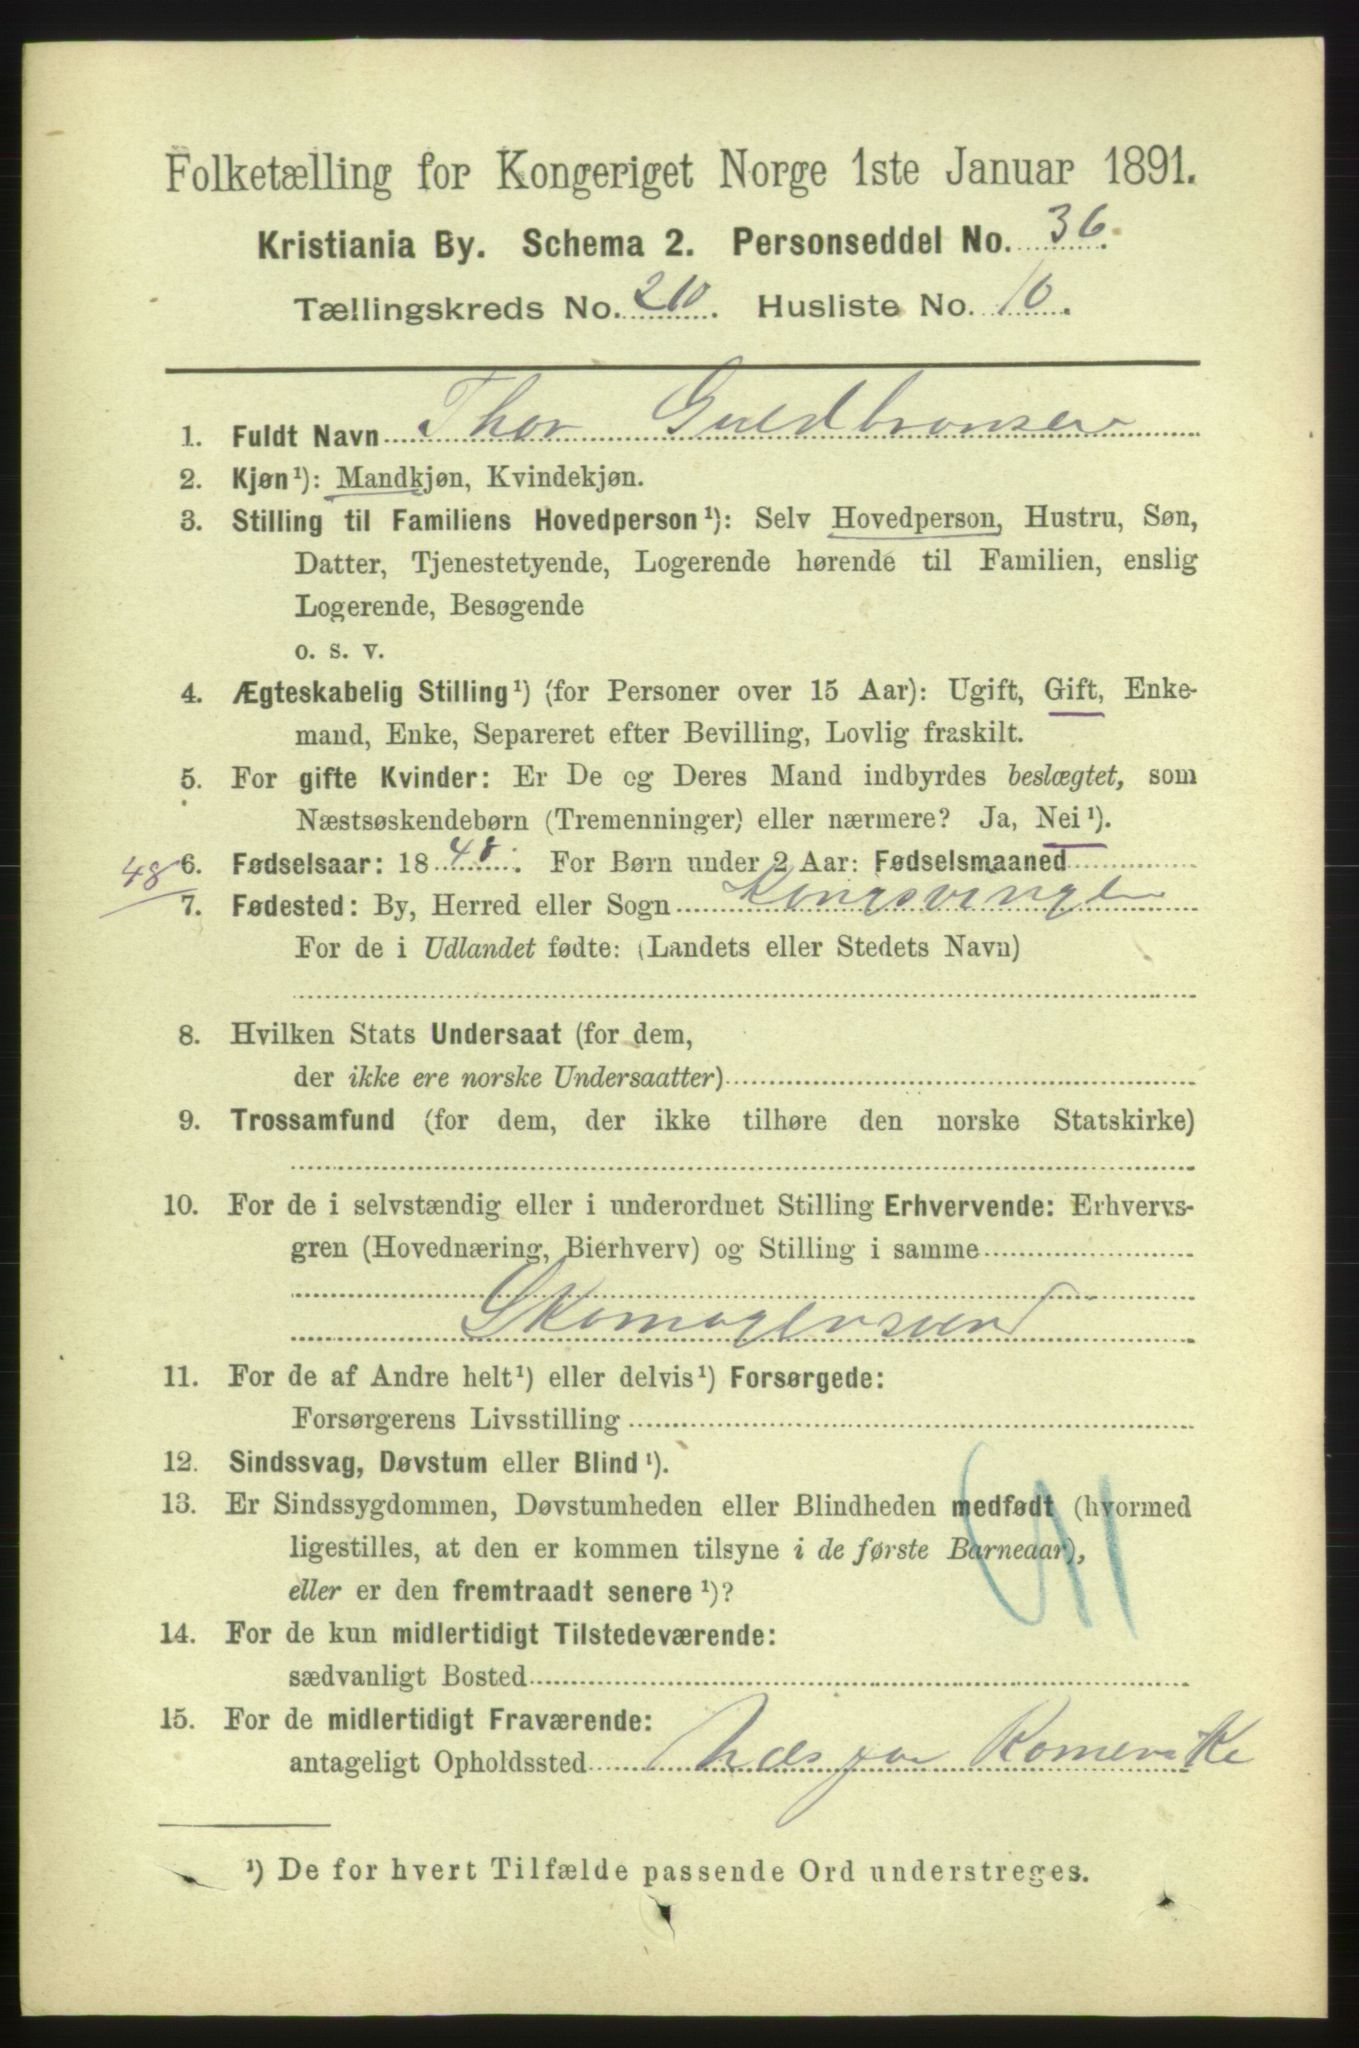 Folketælling for Kongeriget Norge 1ste Januar 1891.
Kristiania By. Schema 2. Personseddel No. 36.
Tællingskreds No. 210. Husliste No. 10.
1. Fuldt Navn Thor Guldbransen
2. Kjøn¹): Mandkjøn, Kvindekjøn.
3. Stilling til Familiens Hovedperson¹): Selv Hovedperson, Hustru, Søn,
Datter, Tjenestetyende, Logerende hørende til Familien, enslig
Logerende, Besøgende
o. s. v.
4. Ægteskabelig Stilling¹) (for Personer over 15 Aar): Ugift, Gift, Enke-
mand, Enke, Separeret efter Bevilling, Lovlig fraskilt.
5. For gifte Kvinder: Er De og Deres Mand indbyrdes beslægtet, som
Næstsøskendebørn (Tremenninger) eller nærmere? Ja, Nei¹).
48 6. Fødselsaar: 1848. For Børn under 2 Aar: Fødselsmaaned
7. Fødested: By, Herred eller Sogn Kongsvinger
For de i Udlandet fødte: (Landets eller Stedets Navn)
8. Hvilken Stats Undersaat (for dem,
der ikke ere norske Undersaatter)
9. Trossamfund (for dem, der ikke tilhøre den norske Statskirke)
10. For de i selvstændig eller i underordnet Stilling Erhvervende: Erhvervs-
gren (Hovednæring, Bierhverv) og Stilling i samme
Skomagersvend
11. For de af Andre helt¹) eller delvis¹) Forsørgede:
Forsørgerens Livsstilling
12. Sindssvag, Døvstum eller Blind¹).
13. Er Sindssygdommen, Døvstumheden eller Blindheden medfødt (hvormed
ligestilles, at den er kommen tilsyne i de første Barneaar),
eller er den fremtraadt senere¹)?
14. For de kun midlertidigt Tilstedeværende:
sædvanligt Bosted
15. For de midlertidigt Fraværende:
antageligt Opholdssted Næs paa Romerike
¹) De for hvert Tilfælde passende Ord understreges.